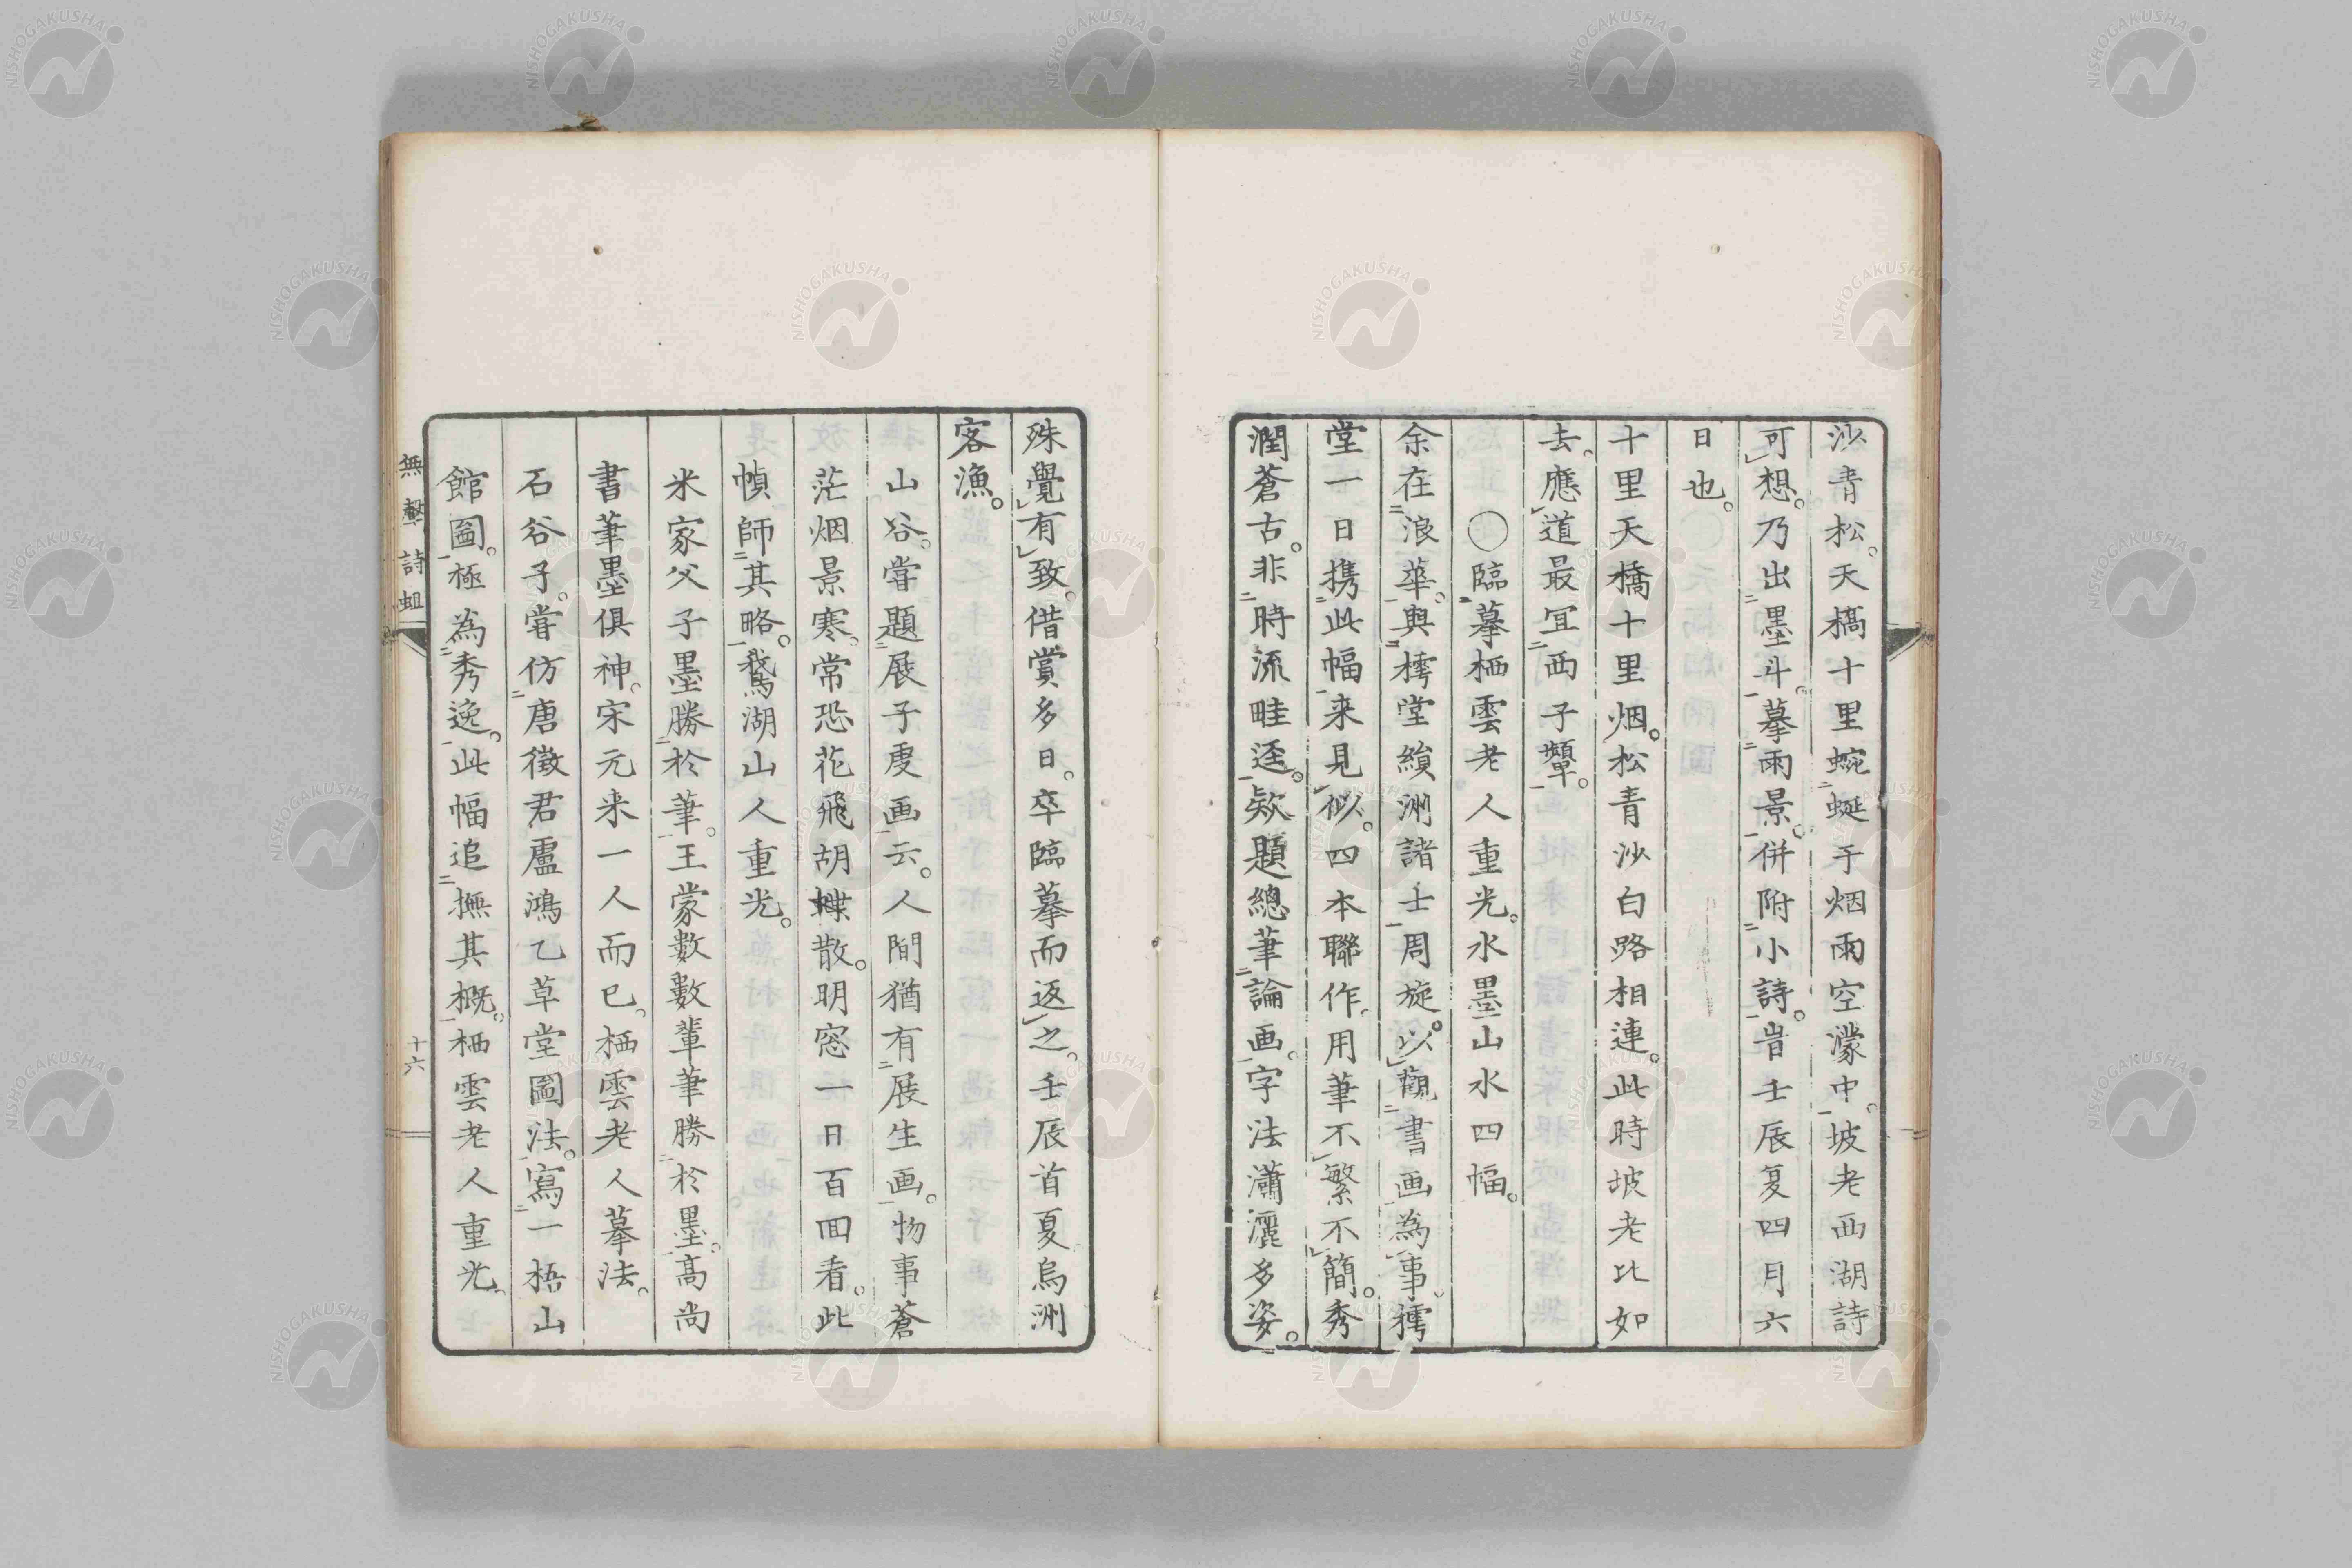 沙青松。天橋十里蜿蜒于烟雨空濛中。坡老西湖詩
可想。乃出墨斗。摹雨景。併附小詩。旹壬辰夏四月六
日也。
十里天橋十里烟。松青沙白路相連。此時坡老比如
去。應道最宜西子顰。
○臨摹栖雲老人重光。水墨山水四幅。
余在浪華。與樗堂縝洲諸士周旋。以觀書画為事。樗
堂一日携此幅来見似。四本聯作。用筆不繁不簡。秀
潤蒼古。非時流畦逕。欵題總筆論画。字法瀟灑多姿。
殊覺有致。借賞多日。卒臨摹而返之。壬辰首夏烏洲
客漁。
山谷。嘗題展子虔画云。人間猶有展生画。物事蒼
茫烟景寒。常恐花飛胡蝶散。明窓一日百回看。此
幀師其略。鵞湖山人重光。
米家父子墨勝於筆。王蒙數數輩筆勝於墨。高尚
書筆墨俱神。宋元来一人而已。栖雲老人摹法。
石谷子。嘗仿唐徵君盧鴻乙草堂圖法。寫一梧山
館圖。極為秀逸。此幅追撫其概。栖雲老人重光。
無聲詩蛆
十六
NISHOGAKUSHA